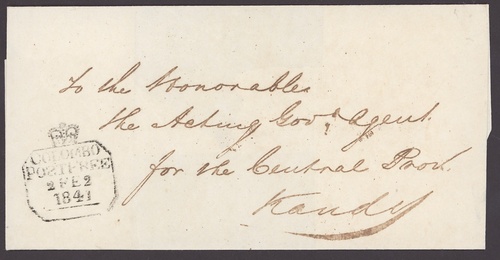 To the Honorable
the Acting Govt Agent
for the Central Prov.
Kandy
COLOMBO
POST FREE
2 FE 2
1841